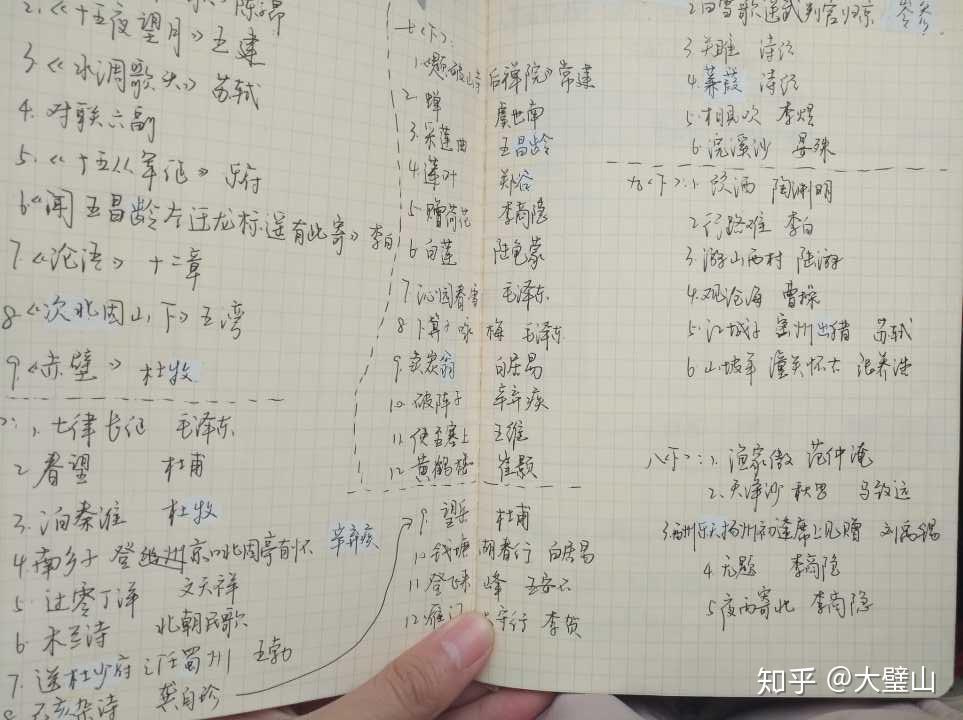 2.《十五夜望月》王建
3《水调歌头》苏轼
4. 对联六副
5.《十五从军征》乐府
6《闻王昌龄左迁龙标遥有此寄》李白
7.《论语》十二章
8《次北固山下》王湾
9.《赤壁》杜牧
1. 七律长征 毛泽东
2 春望 杜甫
3. 泊秦淮 杜牧
4. 南乡子 登京口北固亭有怀 辛弃疾
5. 过零丁洋 文天祥
6 木兰诗 北朝民歌
7. 送杜少府之任蜀州 王勃
己亥杂诗 龚自珍
七(下):
1.《题破山寺后禅院》常建
2. 蝉 虞世南
3. 采莲曲 王昌龄
4 莲叶 郑谷
5. 赠荷花 李商隐
6 白莲 陆龟蒙
7 沁园春雪 毛泽东
8 卜算子咏梅 毛泽东
9. 卖炭翁 白居易
10. 破阵子 辛弃疾
11. 使至塞上 王维
12. 黄鹤楼 崔颢
9. 望岳 杜甫
10. 钱塘湖春行 白居易
11 登飞来峰 王安石
12. 雁门 守行 李贺
2白雪歌送武判官归京 岑参
3 关雎 诗经
4. 蒹葭 诗经
5. 相见欢 李煜
6 浣溪沙 晏殊
九(下):1. 饮酒 陶渊明
2. 行路难 李白
3. 游山西村 陆游
4. 观沧海 曹操
5. 江城子 密州出猎 苏轼
6 山坡羊 潼关怀古 张养浩
八(下):1. 渔家傲 范仲淹
2. 天净沙 秋思 马致远
3. 酬乐天扬州初逢席上见赠 刘禹锡
4 无题 李商隐
5 夜雨寄北 李商隐
知乎 @大璧山